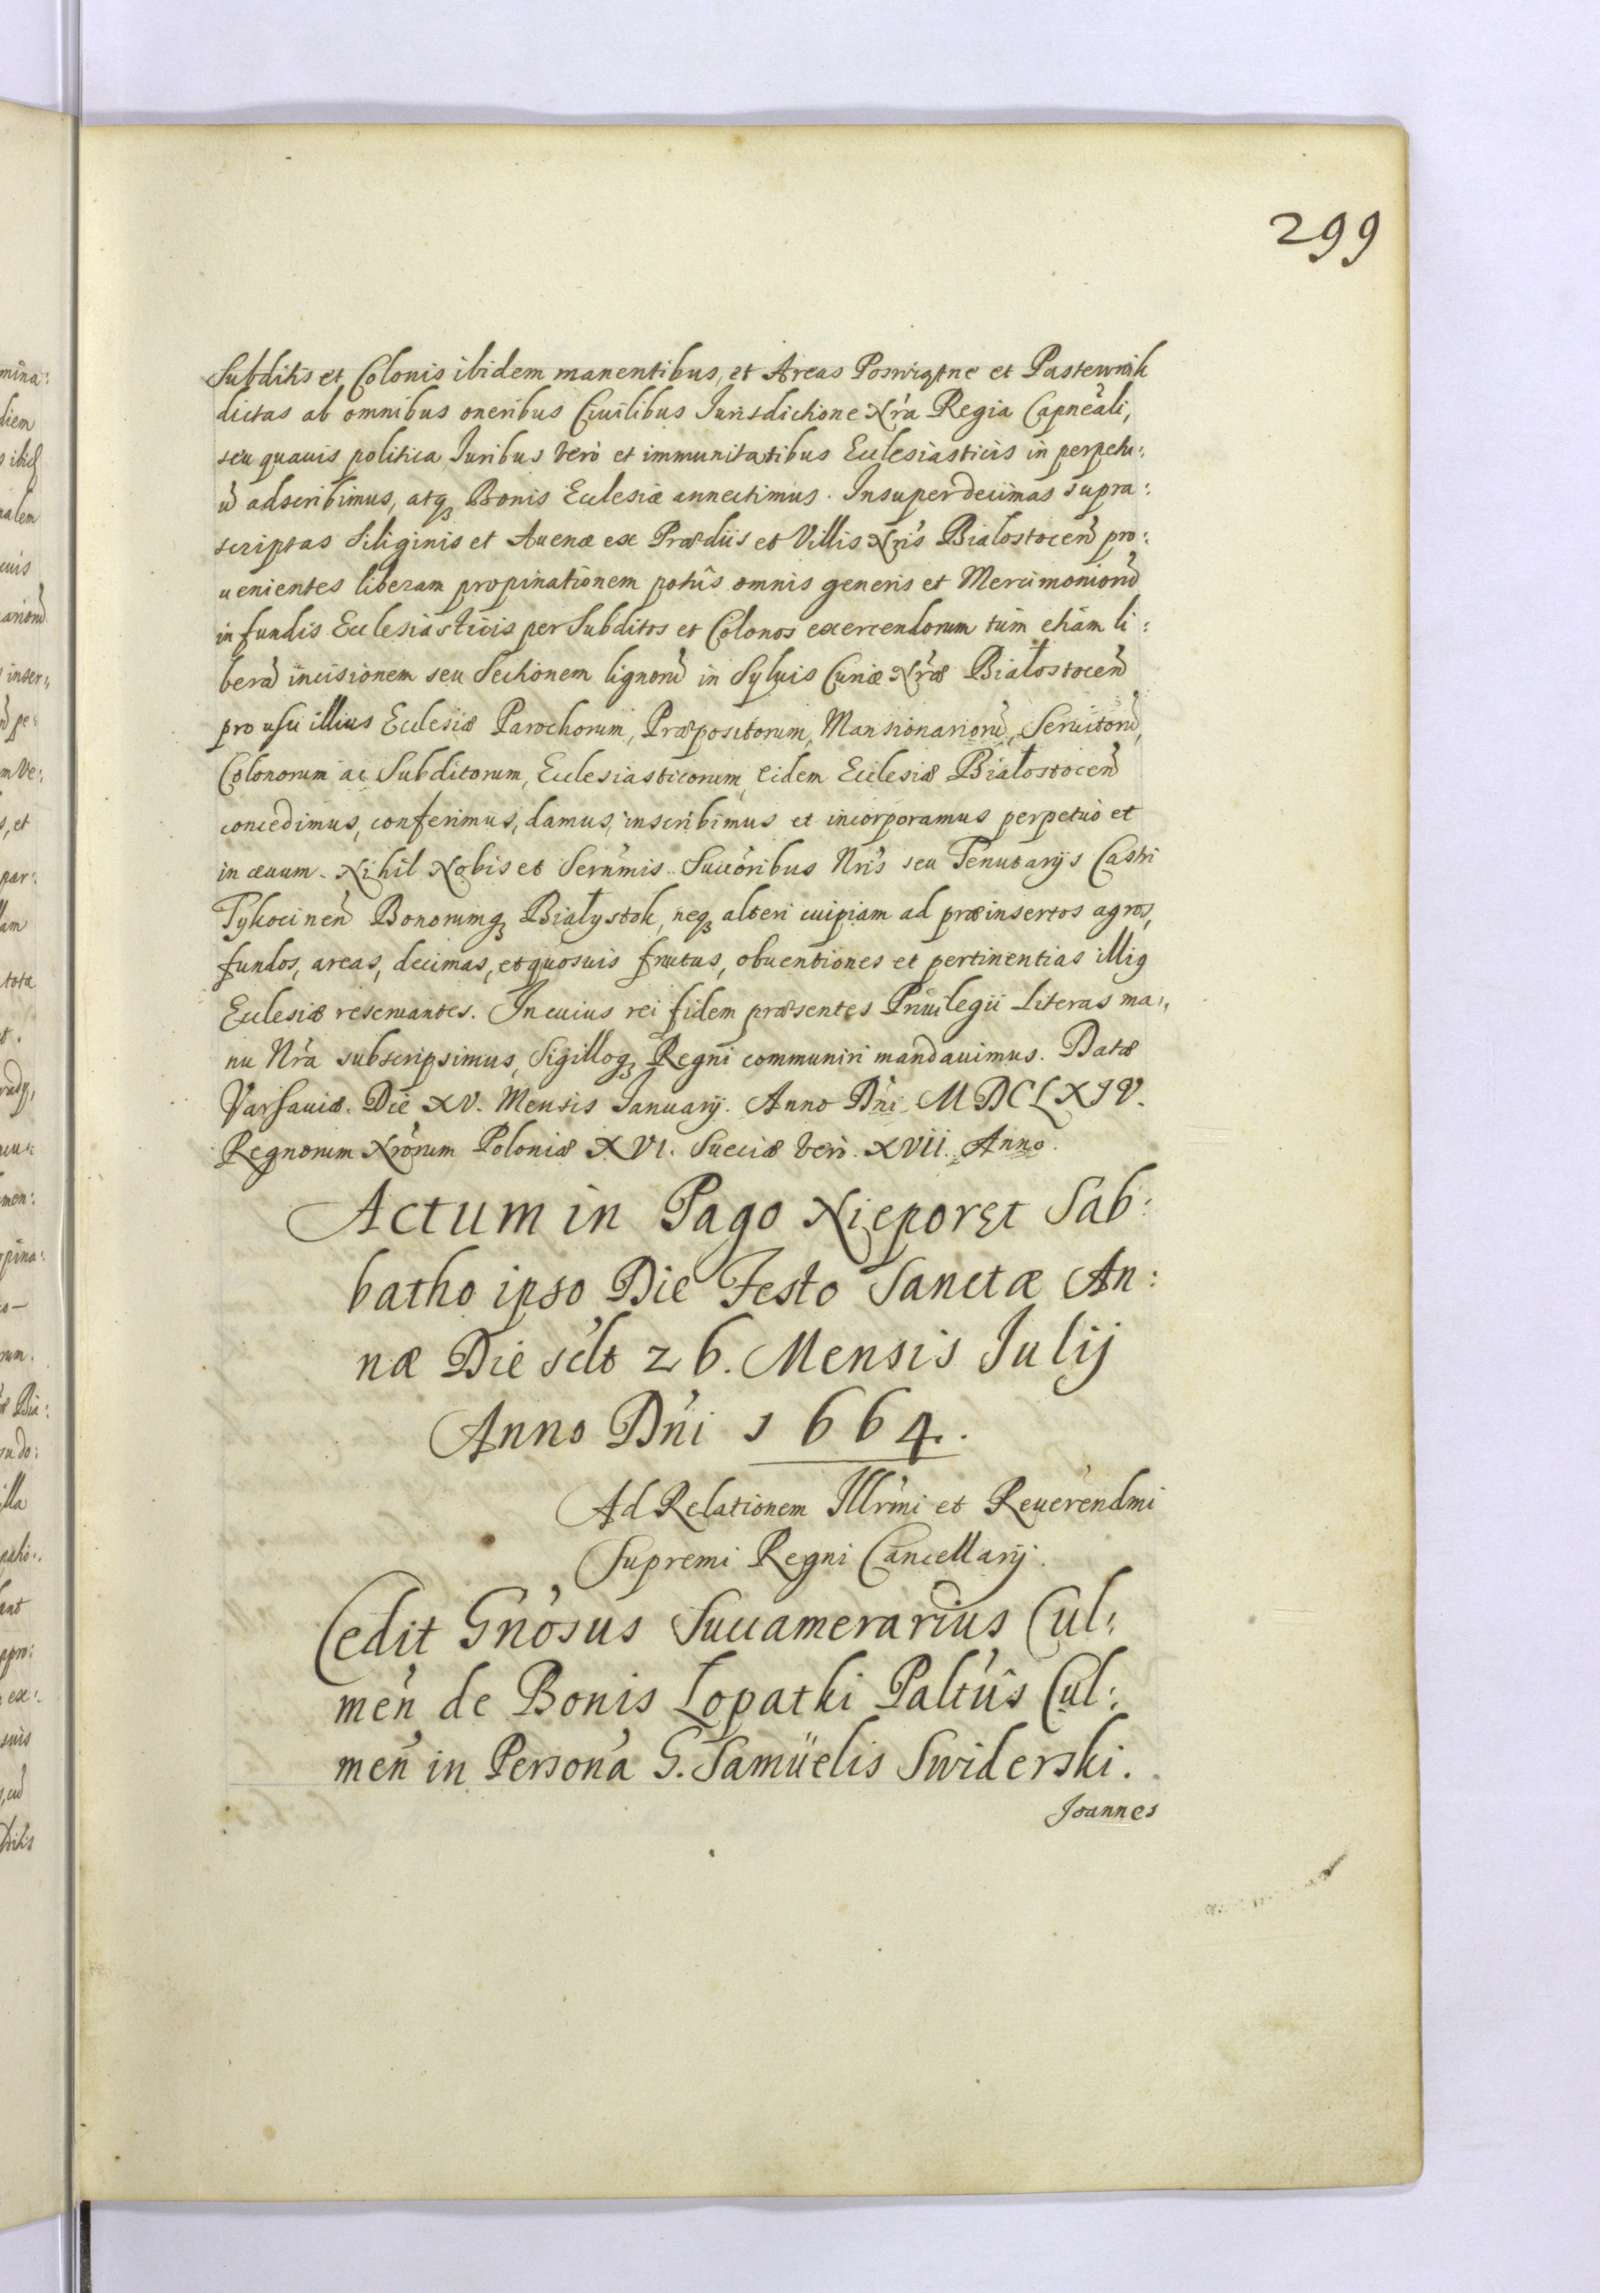 299
Subditis et Colonis ibidem manentibus, et Areas Poswiętne et Pastewnik
dictas ab omnibus oneribus Ciuilibus Jurisdictione Nr̃a Regia Capneali,
seu quauis politica Juribus verò et immunitatibus Ecclesiasticis in perpetu:
ũ adscribimus, atq3 Bonis Ecclesiæ annectimus. Insuper decimas supra:
scriptas Siliginis et Auenæ ex Prædiis et Villis Nr̃is Białostocen̄ pro:
uenientes liberam propinationem potûs omnis generis et Mercimoniorũ
in fundis Ecclesiasticis per Subditos et Colonos exercendorum tùm etiàm li:
berã incisionem seu Sectionem lignorũ in Syluis Curiæ Nr̃æ Białostocen̄
pro usu illius Ecclesiæ Parochorum, Præpositorum, Mansionariorũ, Seruitorũ,
Colonorum ac Subditorum, Ecclesiasticorum, eidem Ecclesiæ Białostocen̄
concedimus, conferimus, damus, inscribimus et incorporamus perpetuò et
in æuum. Nihil Nobis et Seren̄mis Succõribus Nr̃is seu Tenutarijs Castri
Tykocinen̄ Bonorumq3 Białystok, neq3 alteri cuipiam ad præinsertos agros,
fundos, areas, decimas, et quosuis fructus, obuentiones et pertinentias illi9
Ecclesiæ reseruantes. In cuius rei fidem præsentes Priuilegii Literas ma:
nu Nr̃a subscripsimus, Sigilloq3 Regni communiri mandauimus. Datæ
Varsauiæ. Die XV. Mensis January. Anno Dn̄i MDCLXIV.
Regnorum Nr̃orum Poloniæ XVI. Sueciæ verò. XVII. Anno.
Actum in Pago Nieporęt Sab:
batho ipso Die Festo Sanctæ An:
næ Die sc̃lt 26. Mensis Julij
Anno Dn̄i 1664.
Ad Relationem Illr̃mi et Reuerendmi
Supremi Regni Cancellarij.
Cedit Gn̄osus Succamerarius Cul:
men̄ de Bonis Lopatki Paltûs Cul:
men̄ in Persona G. Samüelis Swiderski.
Joannes